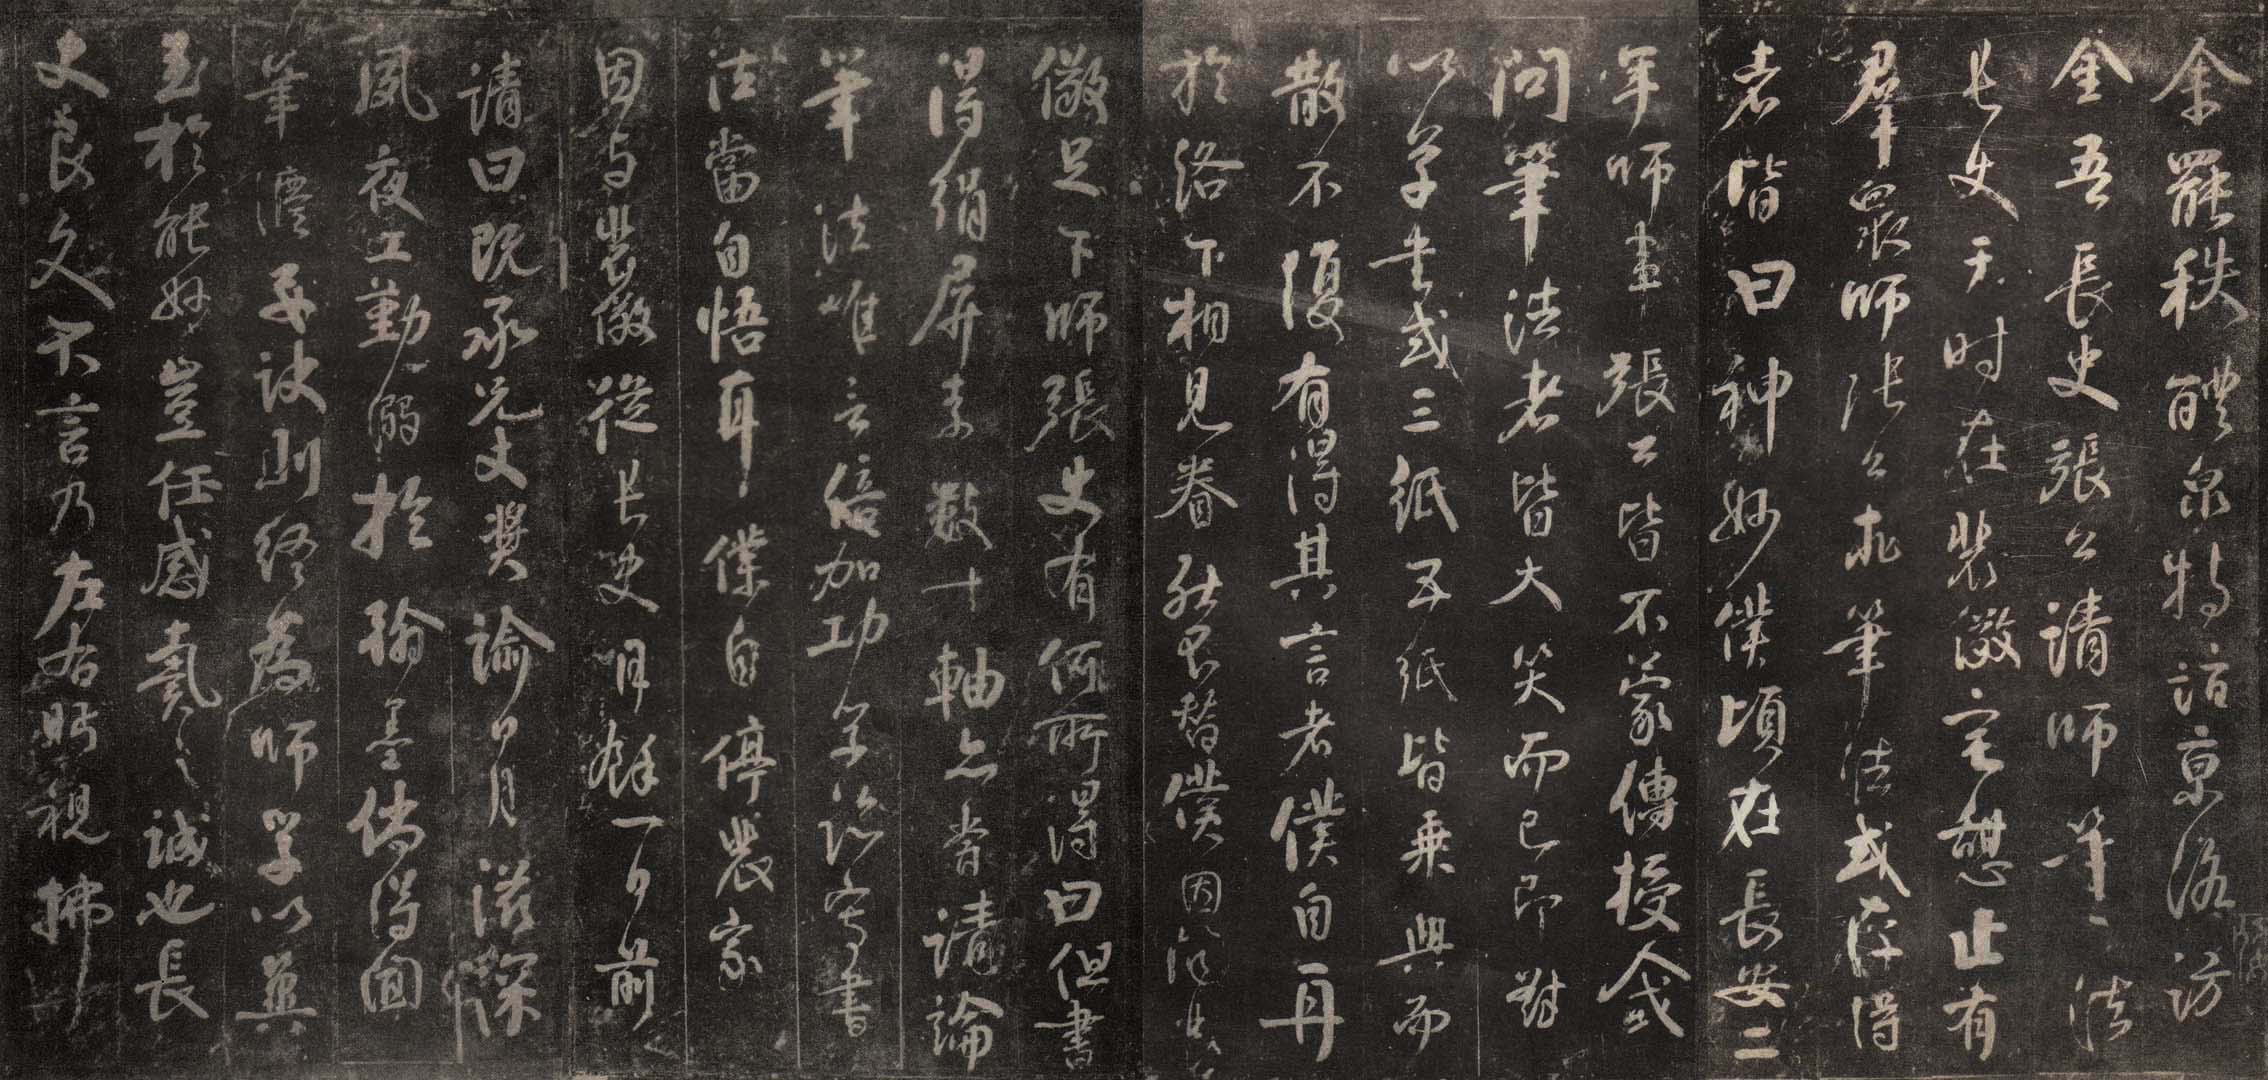 余罷秩醴泉特詣京洛訪
金吾長史張公請師筆法
長史于時在裴儆宅憩止有
羣眾師張公求筆法或存得
者皆曰神妙僕頃在長安二
年師事張公皆不蒙傳授人或
問筆法者皆大笑而已即對
以草書或三紙五紙皆乘興而
散不復有得其言者僕自再
於洛下相見眷然不替僕因
儆足下師張史有何所得曰但書
得絹屏素數十軸亦嘗請論
筆法唯言倍加功學臨寫書
法當自悟耳僕自停裴家
因與裴儆從長史月餘一日前
請曰既承兄丈獎諭日月滋深
夙夜工勤溺於翰墨儻得聞
筆法要訣則終為師學以冀
至於能妙豈任感戴之誠也長
史良久不言乃左右眄視拂